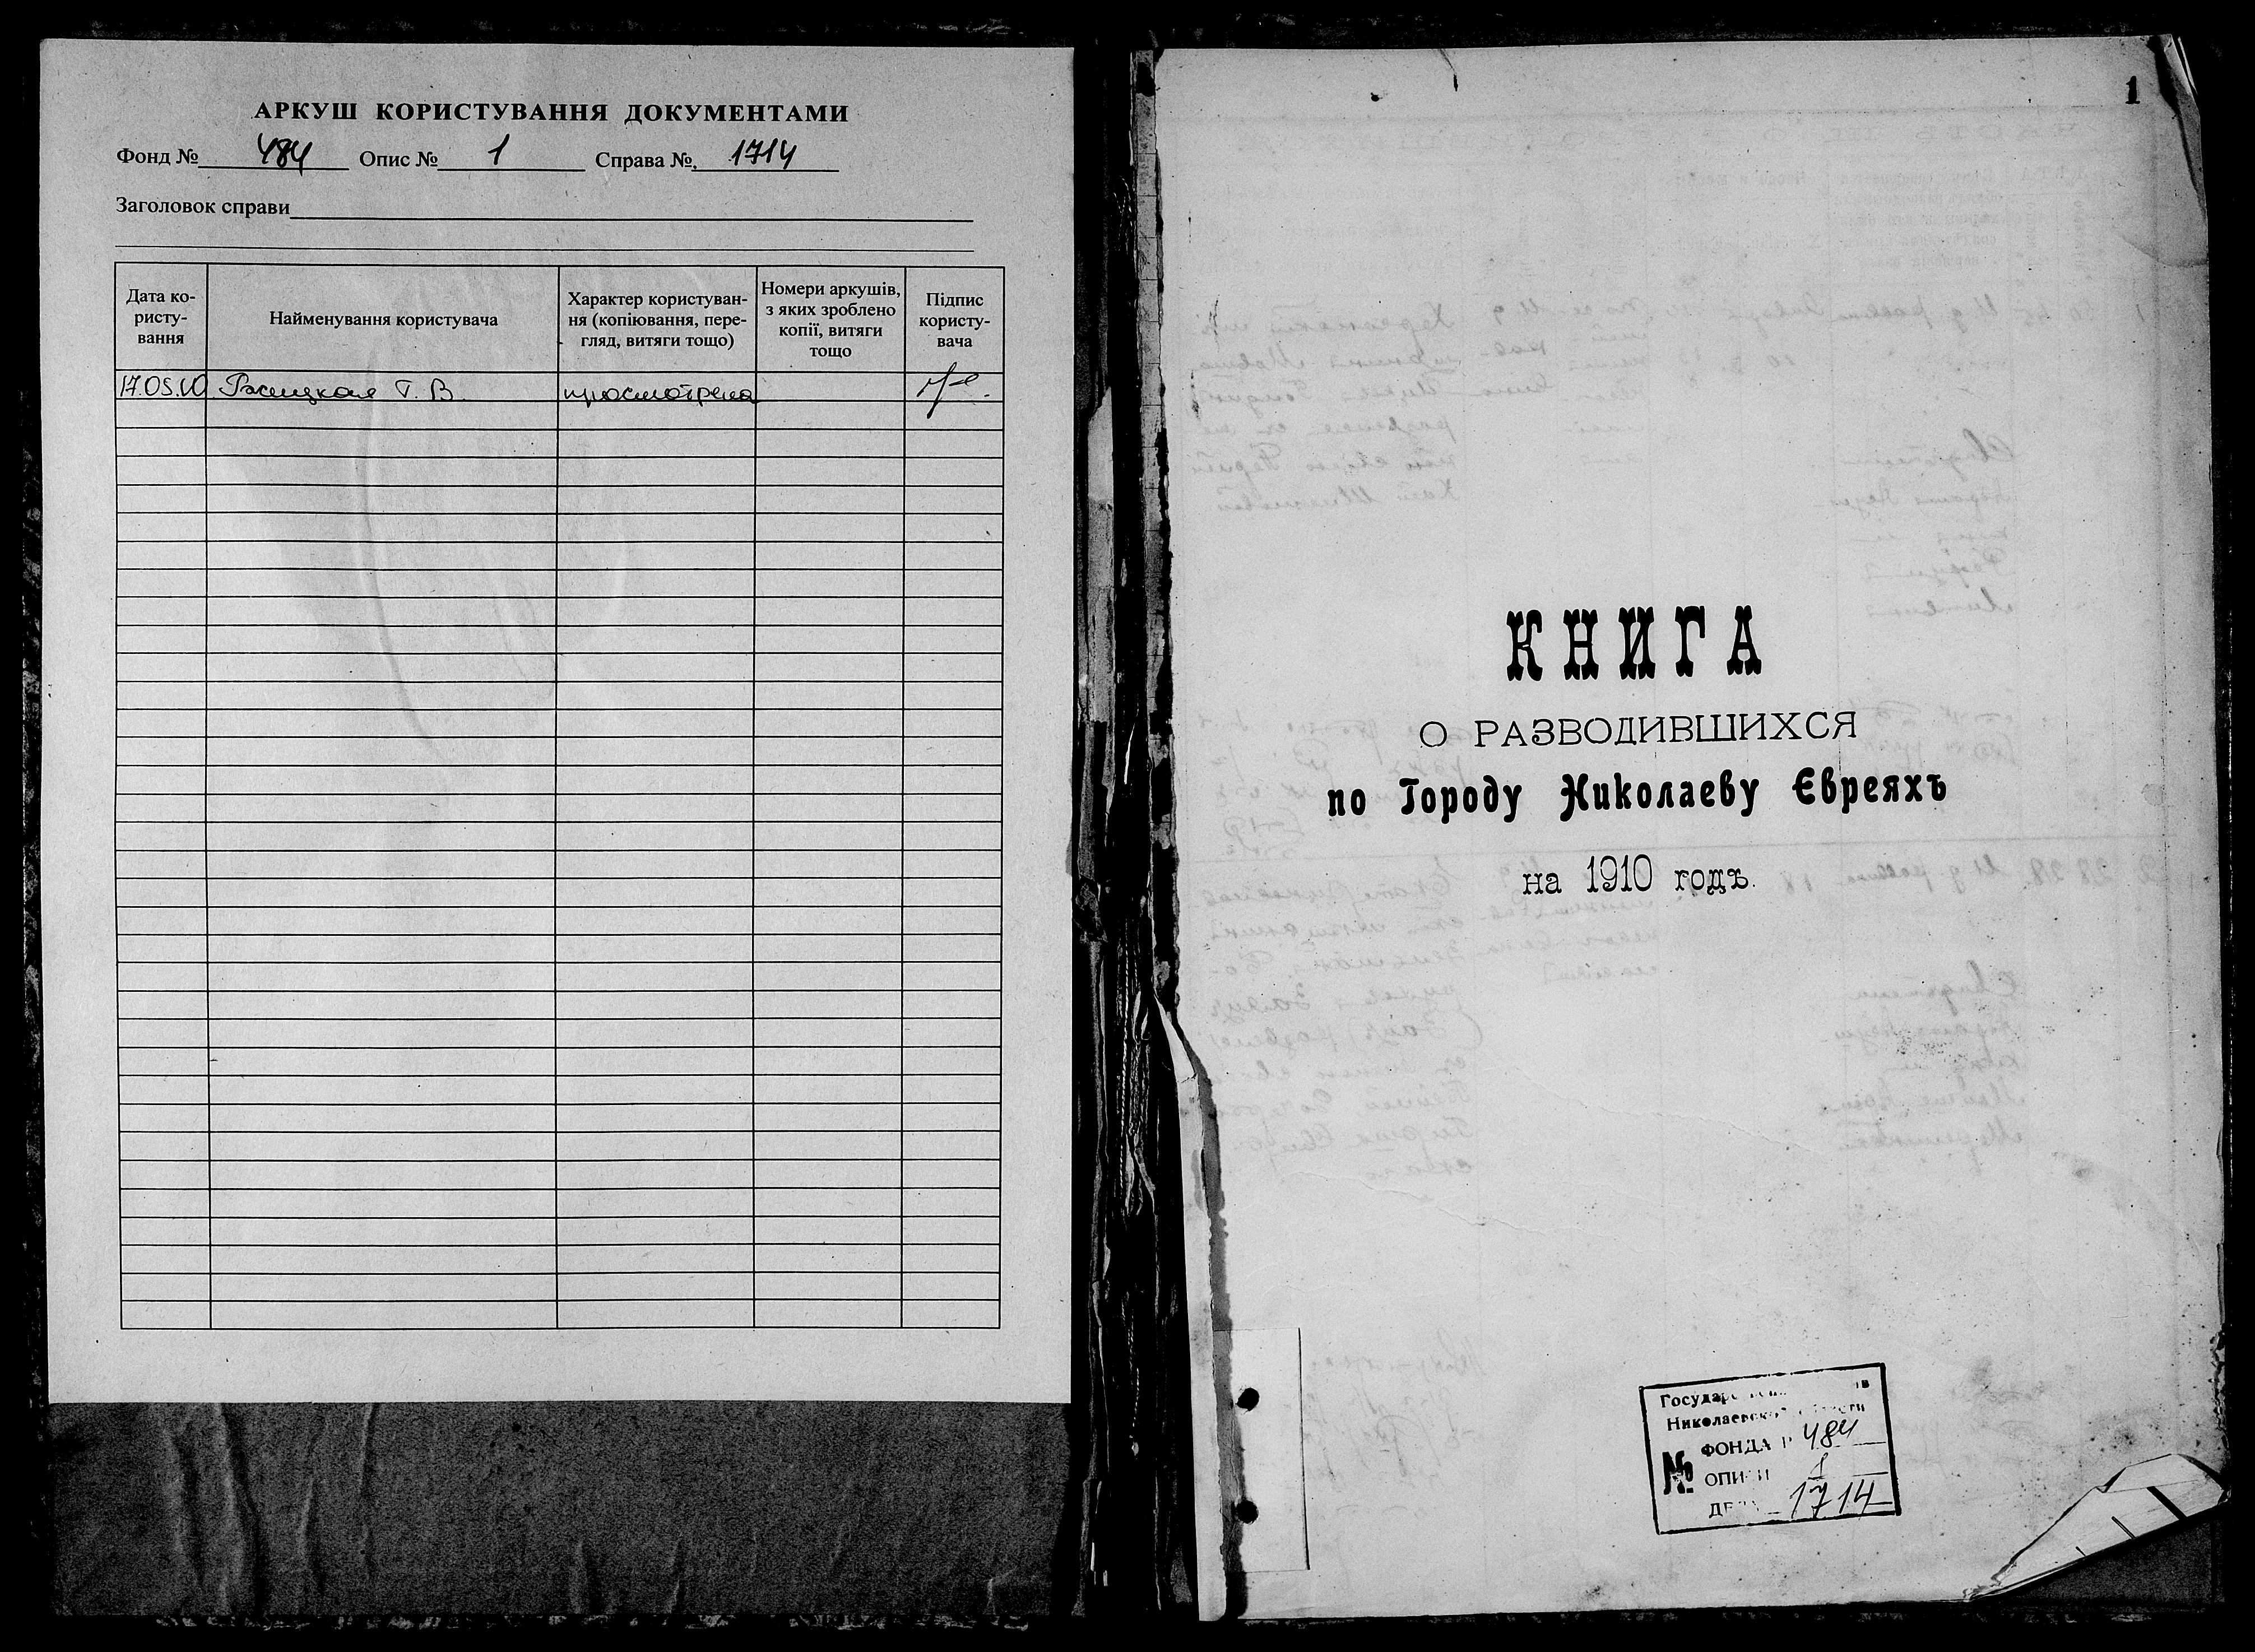 АРКУШ КОРИСТУВАННЯ ДОКУМЕНТАМИ
Фонд № 484 Опис № 1 Справа № 1714
Заголовок справи
Дата ко-
ристу-
вання
Найменування користувача
Характер користуван-
ня (копіювання, пере-
гляд, витяги тощо)
Номери аркушів,
з яких зроблено
копії, витяги
тощо
Підпис
користу-
вача
17.05.10 Т. В. просмотрена
1
КНИГА
О РАЗВОДИВШИХСЯ
по Городу Николаеву Евреяхъ
на 1910 годъ.
№
ФОНДА Р 484
ОПИСИ 1
1714